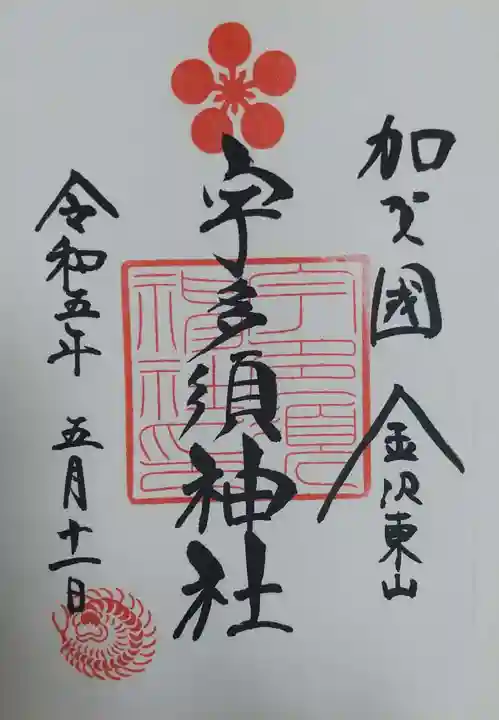 加賀國 金沢東山
宇多須神社
令和五年 五月十一日